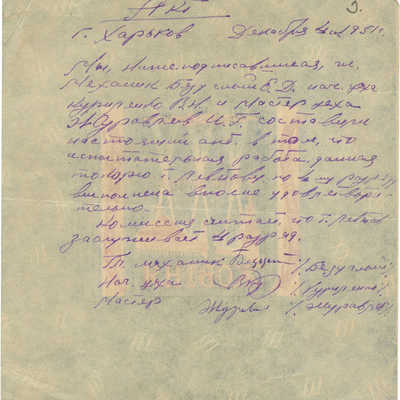 Акт
3.
г. Харьков Декабря 4 дн 1951 г.
Мы, нижеподписавшиеся, гл.
Механик Безуглый Е. Д. нач. цеха
Куриленко В.Н. и Мастер цеха
Журавлев И. Г. составили
настоящий акт в том, что
испытательная работа данная
токарю т. по 4му разряду
выполнена вполне удовлетвори-
тельно.
Комиссия считает, что т.
заслуживает 4 разряд.
Гл. механик /Безуглый/
Нач цеха /Куриленко/
Мастер /Журавлев/